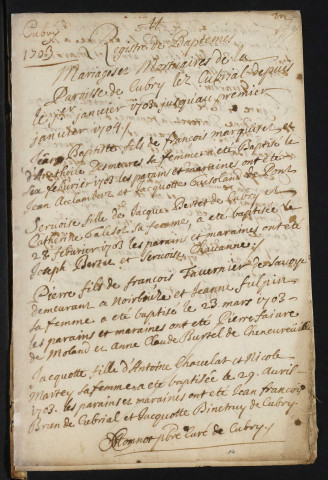 Cubry
1703
Registre de Baptemes
Mariages et Mortuaires de la
Paroisse de Cubry lez Cubrial depuis
le 1er janvier 1703 jusquau premier
janvier 1704
Jean Baptiste fils de francois marguiset et
d'Anthoine sa femme a ete Baptisé le
fevrier 1703 les parains et maraine ont eté
Jean et Jacquotte de
Servoise fille de Jacque Bertet de Cubry et
Catherine sa femme, a eté baptisée le
28 febvrier 1703 les parains et maraines ont eté
Joseph Bertet et Servoise
Pierre fils de francois Tavernier de Savoye
demeurant a et Jeanne
sa femme a ete baptisé le 23 mars 1703
les parains et maraines ont eté Pierre faivre
de et anne Claude Burtel de
Jacquotte fille d'Antoine Chavelat et Nicole
Martey sa femme a eté baptisée le 29 Avril
1703. les parains et maraines ont eté Jean francois
de Cubrial et Jacquotte Binetruy de Cubry
pbre Curé de Cubry